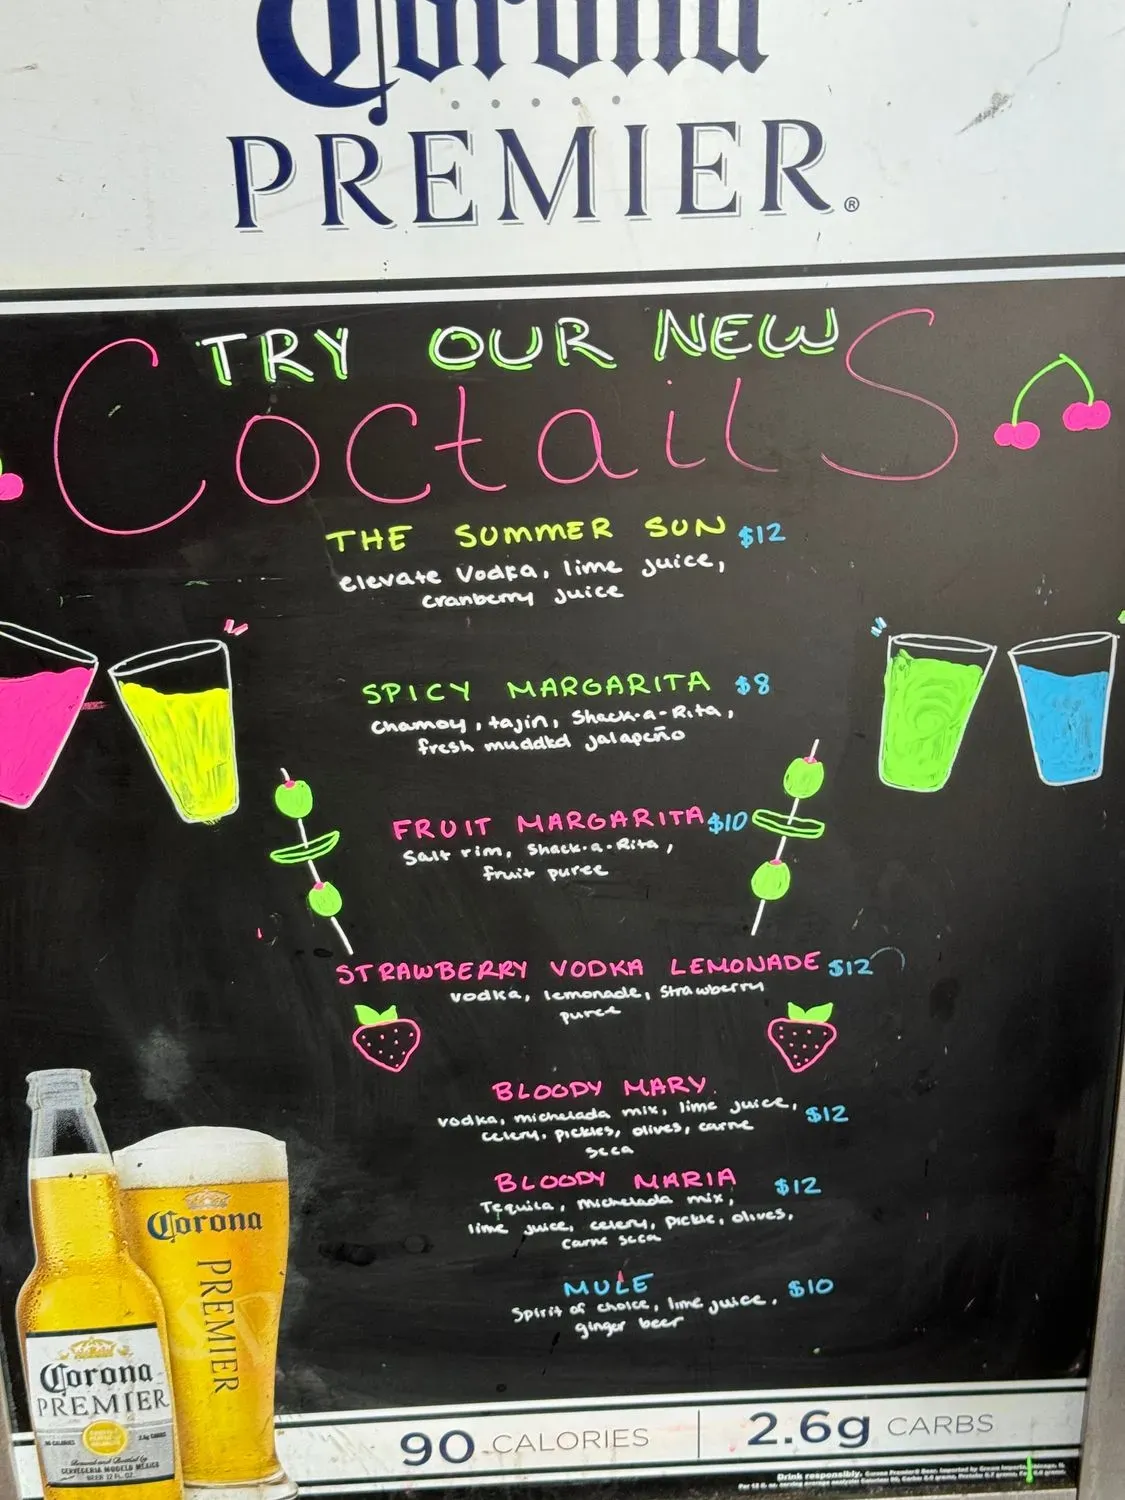 Corona
PREMIER®
TRY OUR NEW
CoctailS
THE SUMMER SUN $12
elevate Vodka, lime juice,
cranberry juice
SPICY MARGARITA $8
chamoy, tajin, Shack-a-Rita,
fresh muddkd jalapeño
FRUIT MARGARITA $10
Salt rim, Shack-a-Rita,
fruit puree
STRAWBERRY VODKA LEMONADE $12
vodka, lemonade, Strawberry
puree
BLOODY MARY
vodka, michelada mix, lime juice, $12
celery, pickles, olives, carne
seca
BLOODY MARIA $12
Tequila, michelada mix,
lime juice, celery, pickle, olives,
carne seca
MULE $10
Spirit of choice, lime juice,
ginger beer
Corona
PREMIER
Corona
PREMIER
90 CALORIES
2.6g CARBS
Drink responsibly.